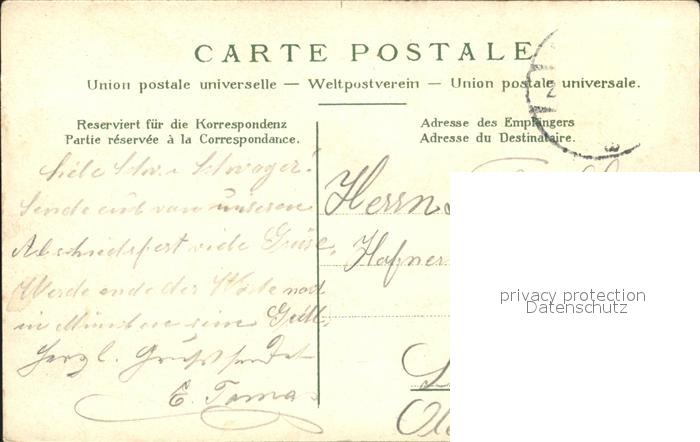 CARTE POSTALE
Union postale universelle — Weltpostverein — Union postale universale.
Reserviert für die Korrespondenz
Partie réservée à la Correspondance.
Adresse des Empfängers
Adresse du Destinataire.
2
Schwager!
Sende euch von unseren
Abschiedsfest viele Grüse.
Werde ende der Woche noch
in München eine
Herzl. Gruss sendet
E. Toma
Herrn
Hafner
privacy protection
Datenschutz